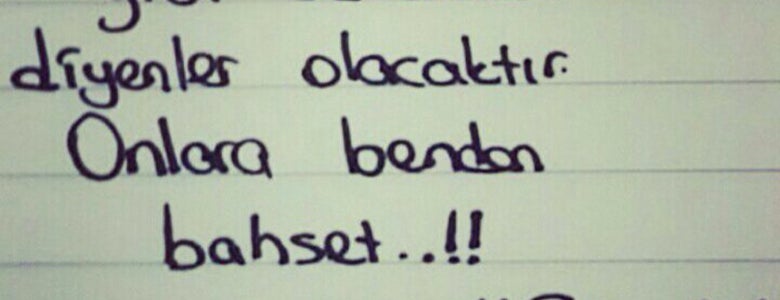 diyenler olacaktır.
Onlara benden
bahset..!!